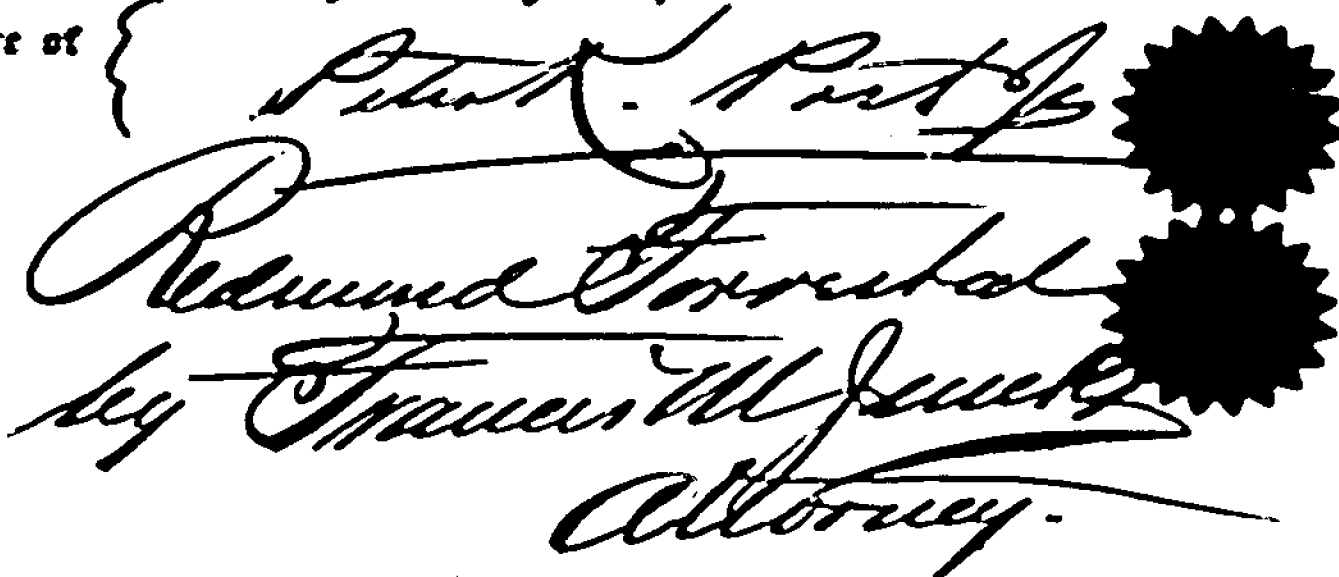 of {
Peter K. Post Jr
Redmund Forrestal
by Francis M Jencks
Attorney.